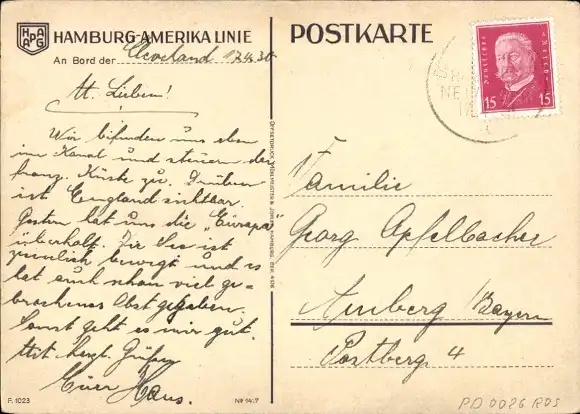 HAPAG
HAMBURG-AMERIKA LINIE
An Bord der Cleveland 17.4.30
M. Lieben!
Wir befinden uns eben
im Kanal und steuern der
franz. Küste zu. Drüben
ist England sichtbar.
Gestern hat uns die „Europa"
überholt. Die See ist
ziemlich bewegt und es
hat auch schon viel ge-
brochenes Obst gegeben.
Sonst geht es mir gut.
Mit herzl. Grüßen
Euer Hans.
F. 1023
No 1417
POSTKARTE
Deutsches Reich
15 15
NE
Familie
Georg Apfelbacher
Amberg / Bayern
Postberg 4
PD 0086 RDS